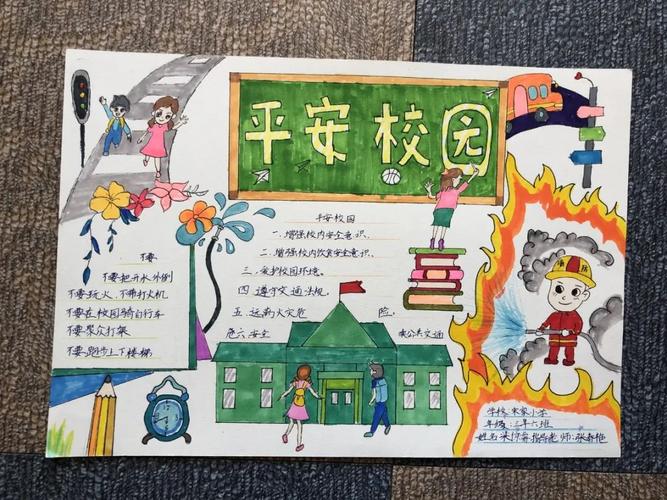 平安校园
平安校园
一.增强校内安全意识.
二.增强校内饮食安全意识.
三.爱护校园环境。
四.遵守交通法规.
五.远离火灾危险.
危六.安全 乘公共交通
不要
不要把开水外倒
不要玩火、不带打火机
不要在校园骑自行车
不要聚众打架
不要跑步上下楼梯
消防
学校:宋家小学
年级:三年六班
姓名 指导老师:张春艳